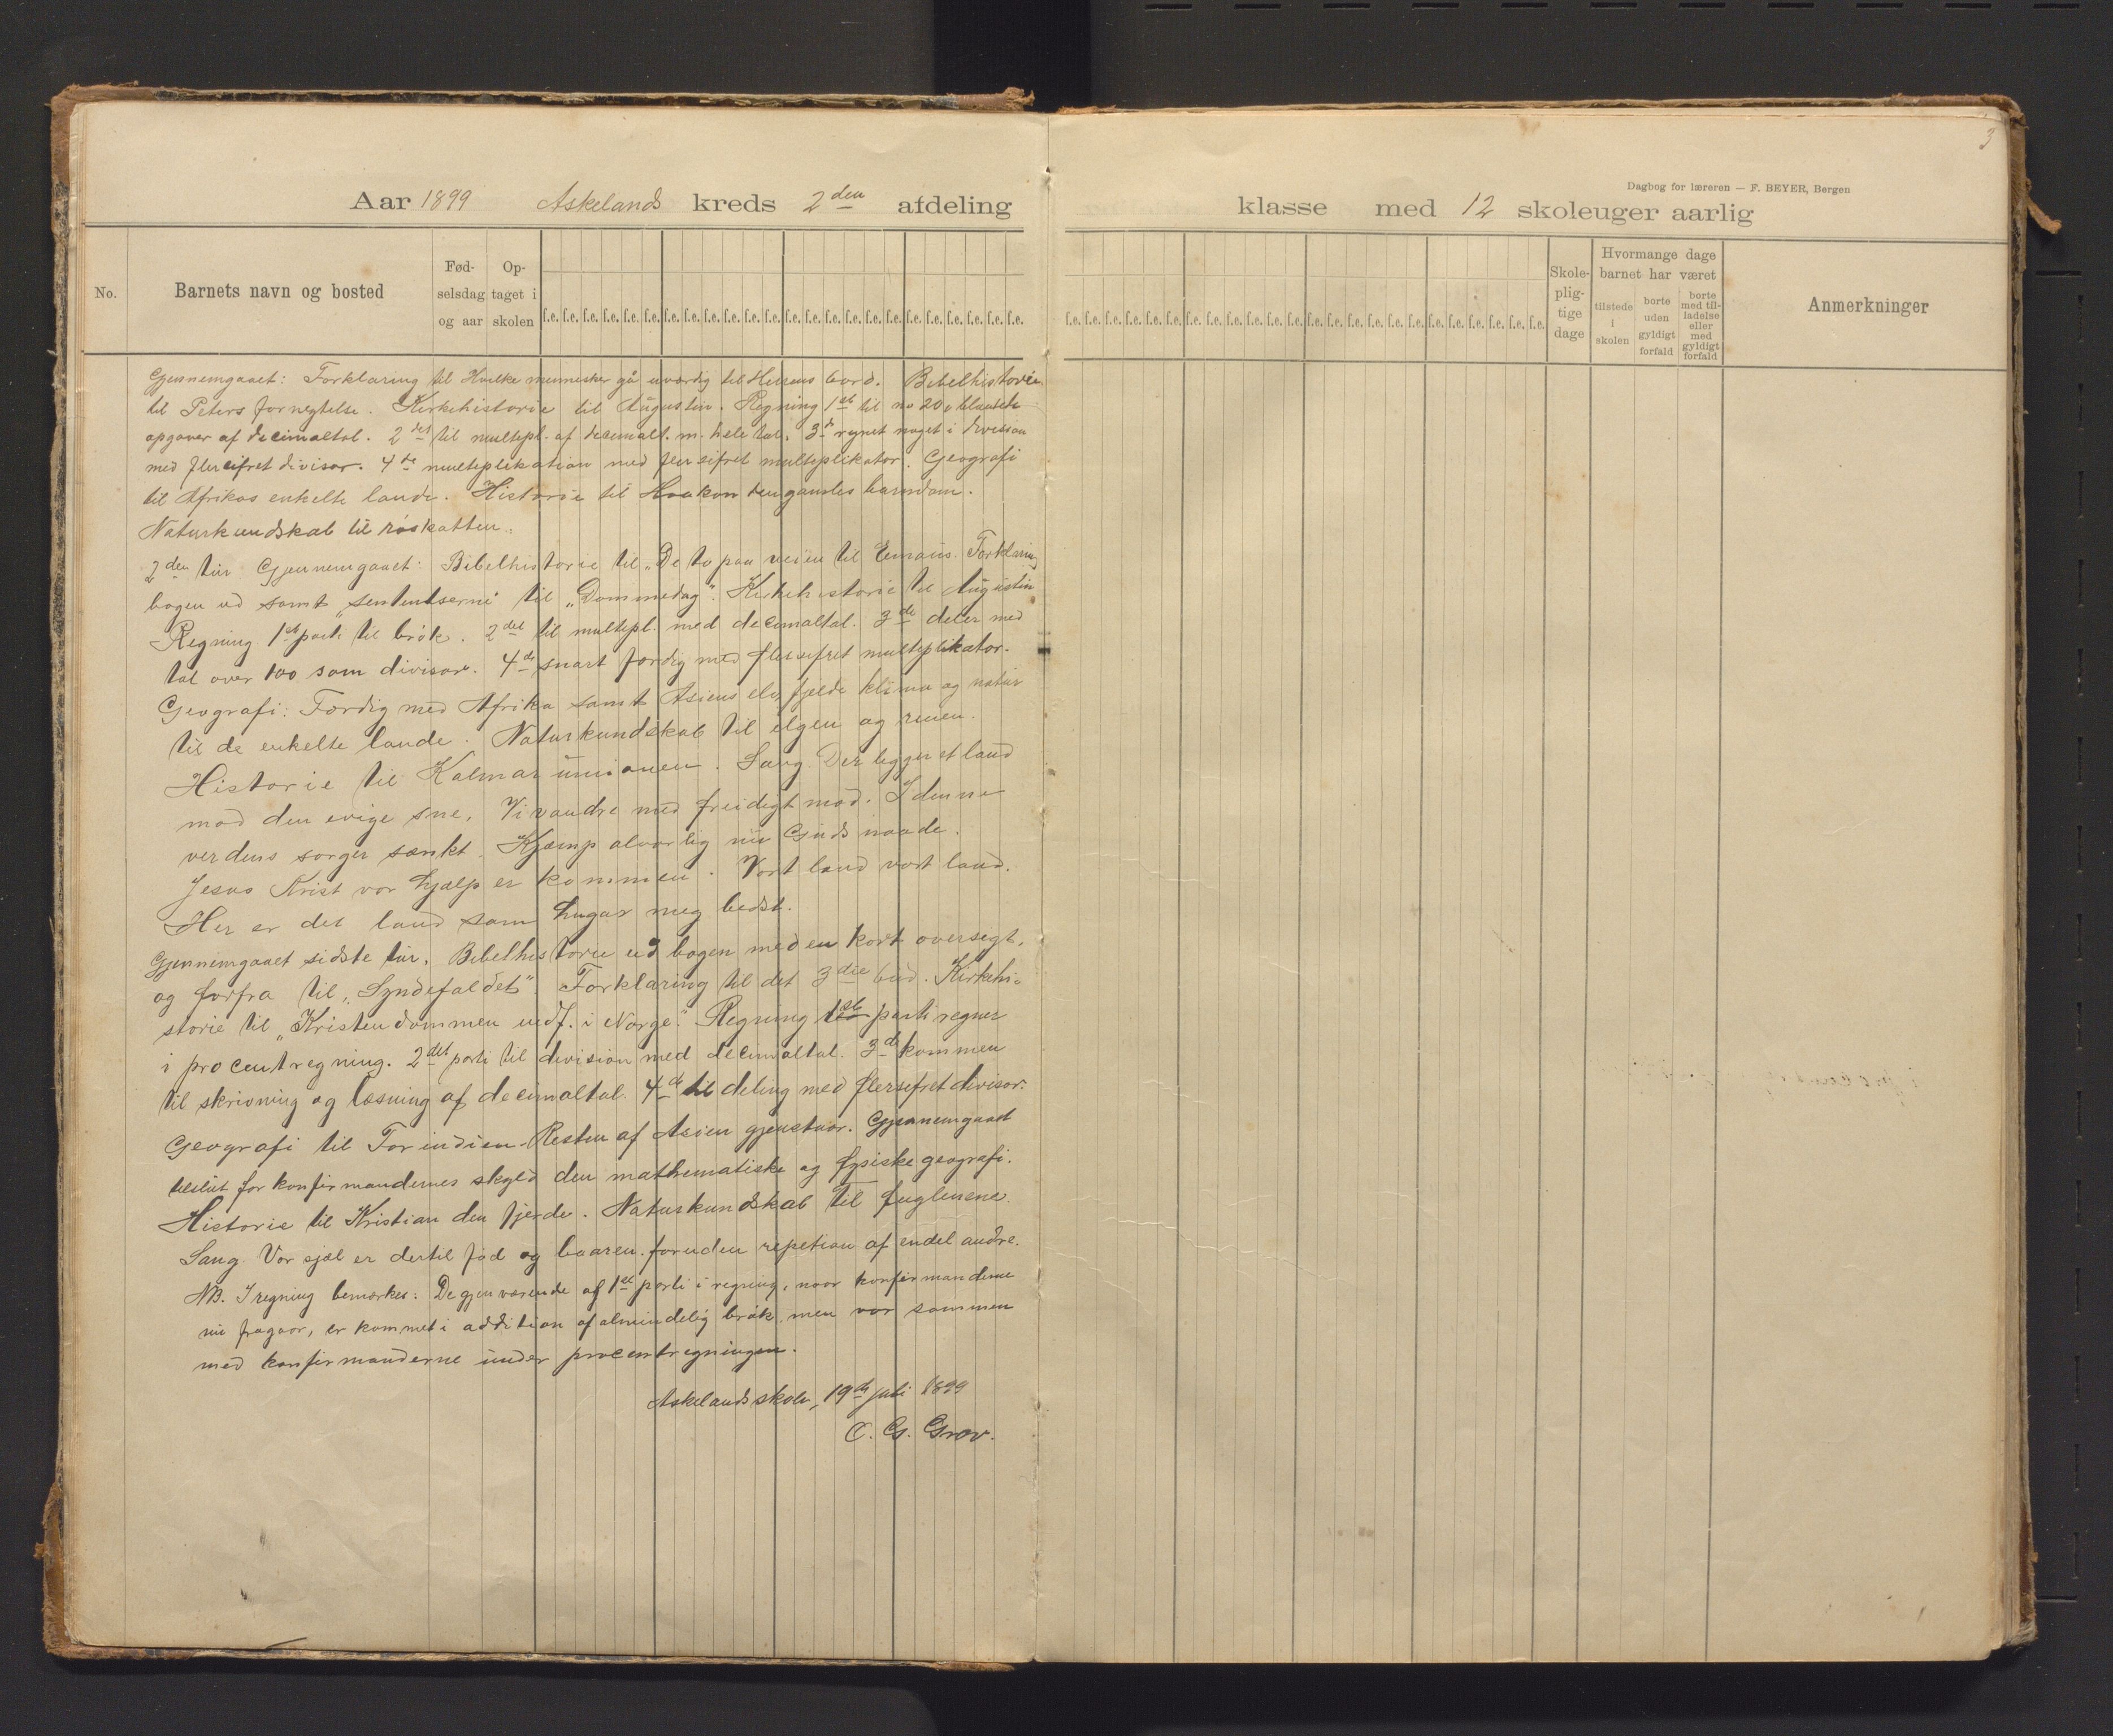 3
Dagbog for læreren — F. BEYER, Bergen
Aar 1899 Askelands kreds 2den afdeling
klasse med 12 skoleuger aarlig
No.
Barnets navn og bosted
Fød-
selsdag
og aar
Op-
taget i
skolen
f.e. f.e. f.e. f.e. f.e. f.e. f.e. f.e. f.e. f.e. f.e. f.e. f.e. f.e. f.e. f.e. f.e. f.e. f.e. f.e. f.e. f.e. f.e. f.e.
f.e. f.e. f.e. f.e. f.e. f.e. f.e. f.e. f.e. f.e. f.e. f.e. f.e. f.e. f.e. f.e. f.e. f.e. f.e. f.e. f.e. f.e. f.e. f.e.
Skole-
plig-
tige
dage
Hvormange dage
barnet har været
tilstede
i
skolen
borte
uden
gyldigt
forfald
borte
med til-
ladelse
eller
med
gyldigt
forfald
Anmerkninger
Gjennemgaaet: Forklaring til Hvilke mennesker gå uværdig til Herrens bord. Bibelhistorie
til Peters fornegtelse. Kirkehistorie til Augustin. Regning 1ste til no 20, blandede
opgaver af decimaltal. 2det til multipl. af decimalt. m. hele tal. 3de regnet noget i division
med flercifret divisor. 4de multiplikation med flersifret multiplikator. Geografi
til Afrikas enkelte lande. Historie til Haakon den gamles barndom.
Naturkundskab til røskatten.
2den tur Gjennemgaaet: Bibelhistorie til „De to paa veien til Emaus. Forklaring
bogen ud samt sententserne til „Dommedag". Kirkehistorie til Augustin
Regning 1ste parti til brøk. 2det til multipl. med decimaltal. 3de deler med
tal over 100 som divisor. 4de snart færdig med flersifret multiplikator.
Geografi: Færdig med Afrika samt Asiens elv, fjelde klima og natur
til de enkelte lande. Naturkundskab til elgen og renen.
Historie til Kalmarunionen. Sang Der ligger et land
mod den evige sne, Vi vandre med freidigt mod. I denne
verdens sorger sænkt. Kjæmp alvorlig nu Guds naade.
Jesus Krist vor hjælp er kommen. Vort land vort land.
Her er det land som hugar meg bedst.
Gjennemgaaet sidste tur. Bibelhistorie ud bogen med en kort oversigt,
og forfra til „Syndefaldet". Forklaring til det 3die bud. Kirkehi-
storie til „Kristendommen indf. i Norge." Regning 1ste parti regner
i procentregning. 2det parti til division med decimaltal. 3de kommen
til skrivning og læsning af decimaltal. 4de til deling med flersifret divisor.
Geografi til Forindien. Resten af Asien gjenstaar. Gjennemgaaet
tilslut for konfirmandernes skyld den mathematiske og fysiske geografi.
Historie til Kristian den fjerde. Naturkundskab til fuglene.
Sang. Vor sjæl er dertil fød og baaren. foruden repetion af endel andre.
NB. I regning bemærkes: De gjenværende af 1ste parti i regning, naar konfirmanderne
nu fragaar, er kommet i addition af almindelig brøk, men var sammen
med konfirmanderne under procentregningen.
Askelands skole, 19de juli 1899
O. G. Grov.